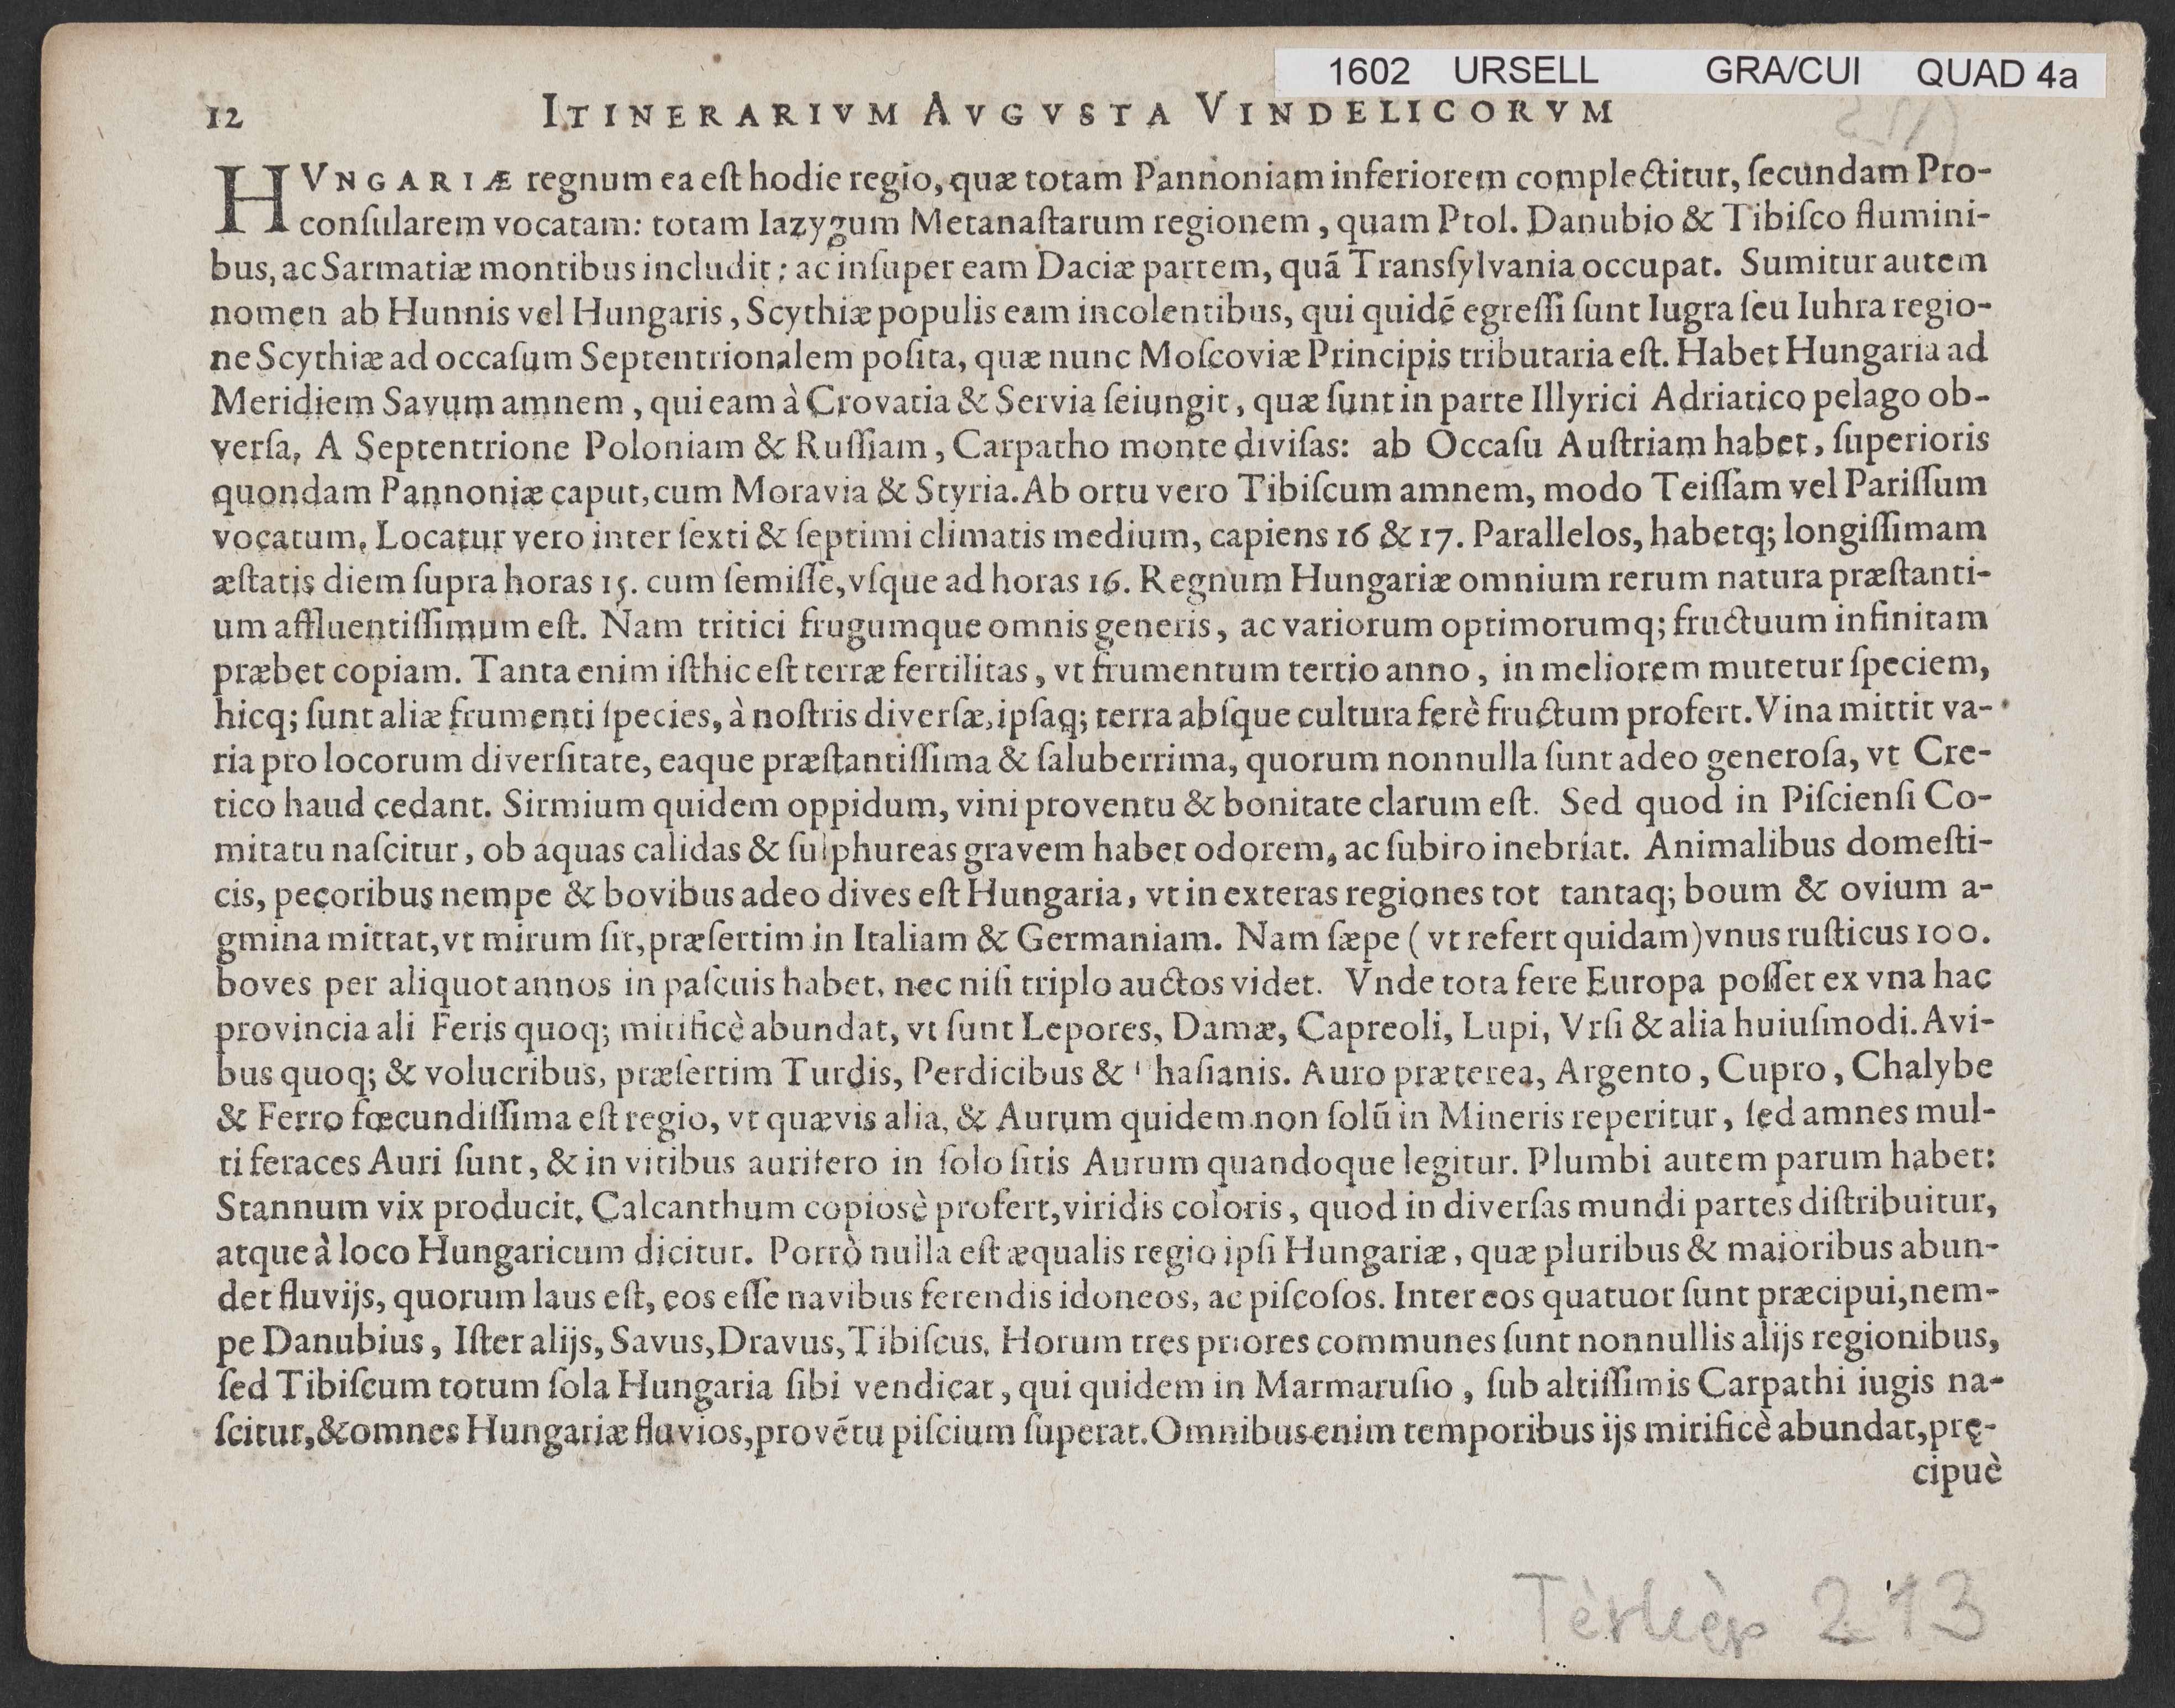 1602 URSELL GRA/CUI QUAD 4a
12 ITINERARIVM AVGVSTA VINDELICORVM
HVNGARIÆ regnum ea eſt hodie regio, quæ totam Pannoniam inferiorem complectitur, ſecundam Pro-
conſularem vocatam: totam Iazygum Metanaſtarum regionem, quam Ptol. Danubio & Tibiſco flumini-
bus, ac Sarmatiæ montibus includit; ac inſuper eam Daciæ partem, quã Transſylvania occupat. Sumitur autem
nomen ab Hunnis vel Hungaris, Scythiæ populis eam incolentibus, qui quidẽ egreſſi ſunt Iugra ſeu Iuhra regio-
ne Scythiæ ad occaſum Septentrionalem poſita, quæ nunc Moſcoviæ Principis tributaria eſt. Habet Hungaria ad
Meridiem Savum amnem, qui eam à Crovatia & Servia ſeiungit, quæ ſunt in parte Illyrici Adriatico pelago ob-
verſa, A Septentrione Poloniam & Ruſſiam, Carpatho monte diviſas: ab Occaſu Auſtriam habet, ſuperioris
quondam Pannoniæ caput, cum Moravia & Styria. Ab ortu vero Tibiſcum amnem, modo Teiſſam vel Pariſſum
vocatum. Locatur vero inter ſexti & ſeptimi climatis medium, capiens 16 & 17. Parallelos, habetq; longiſſimam
æſtatis diem ſupra horas 15. cum ſemiſſe, vſque ad horas 16. Regnum Hungariæ omnium rerum natura præſtanti-
um affluentiſſimum eſt. Nam tritici frugumque omnis generis, ac variorum optimorumq; fructuum infinitam
præbet copiam. Tanta enim iſthic eſt terræ fertilitas, vt frumentum tertio anno, in meliorem mutetur ſpeciem,
hicq; ſunt aliæ frumenti ſpecies, à noſtris diverſæ, ipſaq; terra abſque cultura ferè fructum profert. Vina mittit va-
ria pro locorum diverſitate, eaque præſtantiſſima & ſaluberrima, quorum nonnulla ſunt adeo generoſa, vt Cre-
tico haud cedant. Sirmium quidem oppidum, vini proventu & bonitate clarum eſt. Sed quod in Piſcienſi Co-
mitatu naſcitur, ob aquas calidas & ſulphureas gravem habet odorem, ac ſubito inebriat. Animalibus domeſti-
cis, pecoribus nempe & bovibus adeo dives eſt Hungaria, vt in exteras regiones tot tantaq; boum & ovium a-
gmina mittat, vt mirum ſit, præſertim in Italiam & Germaniam. Nam ſæpe (vt refert quidam) vnus ruſticus 100.
boves per aliquot annos in paſcuis habet, nec niſi triplo auctos videt. Vnde tota fere Europa poſſet ex vna hac
provincia ali Feris quoq; mirificè abundat, vt ſunt Lepores, Damæ, Capreoli, Lupi, Vrſi & alia huiuſmodi. Avi-
bus quoq; & volucribus, præſertim Turdis, Perdicibus & Phaſianis. Auro præterea, Argento, Cupro, Chalybe
& Ferro fœcundiſſima eſt regio, vt quævis alia, & Aurum quidem non ſolũ in Mineris reperitur, ſed amnes mul-
ti feraces Auri ſunt, & in vitibus aurifero in ſolo ſitis Aurum quandoque legitur. Plumbi autem parum habet:
Stannum vix producit. Calcanthum copiosè profert, viridis coloris, quod in diverſas mundi partes diſtribuitur,
atque à loco Hungaricum dicitur. Porrò nulla eſt æqualis regio ipſi Hungariæ, quæ pluribus & maioribus abun-
det fluvijs, quorum laus eſt, eos eſſe navibus ferendis idoneos, ac piſcoſos. Inter eos quatuor ſunt præcipui, nem-
pe Danubius, Iſter alijs, Savus, Dravus, Tibiſcus. Horum tres priores communes ſunt nonnullis alijs regionibus,
ſed Tibiſcum totum ſola Hungaria ſibi vendicat, qui quidem in Marmaruſio, ſub altiſſimis Carpathi iugis na-
ſcitur, & omnes Hungariæ fluvios, provẽtu piſcium ſuperat. Omnibus enim temporibus ijs mirificè abundat, prę-
cipuè
Térkép 213